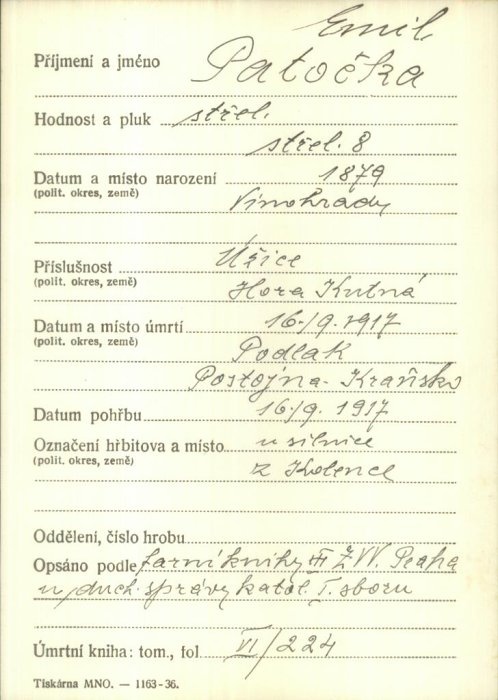 Emil
Příjmení a jméno Patočka
Hodnost a pluk střel.
střel. 8
Datum a místo narození 1879
(polit. okres, země) Vinohrady
Příslušnost Úžice
(polit. okres, země) Hora Kutná
Datum a místo úmrtí 16./9. 1917
(polit. okres, země) Podlak
Postojna - Kraňsko
Datum pohřbu 16./9. 1917
Označení hřbitova a místo u silnice
(polit. okres, země) z Kolence
Oddělení, číslo hrobu
Opsáno podle farní knihy III ŽVV. Praha
u duch. správy katol. I. sboru
Úmrtní kniha: tom., fol. VI/224
Tiskárna MNO. — 1163-36.